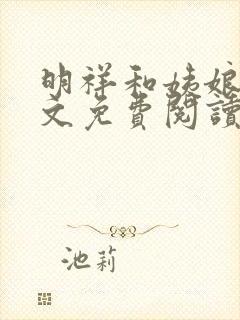 明祥和姨娘
文免費閱讀
池莉